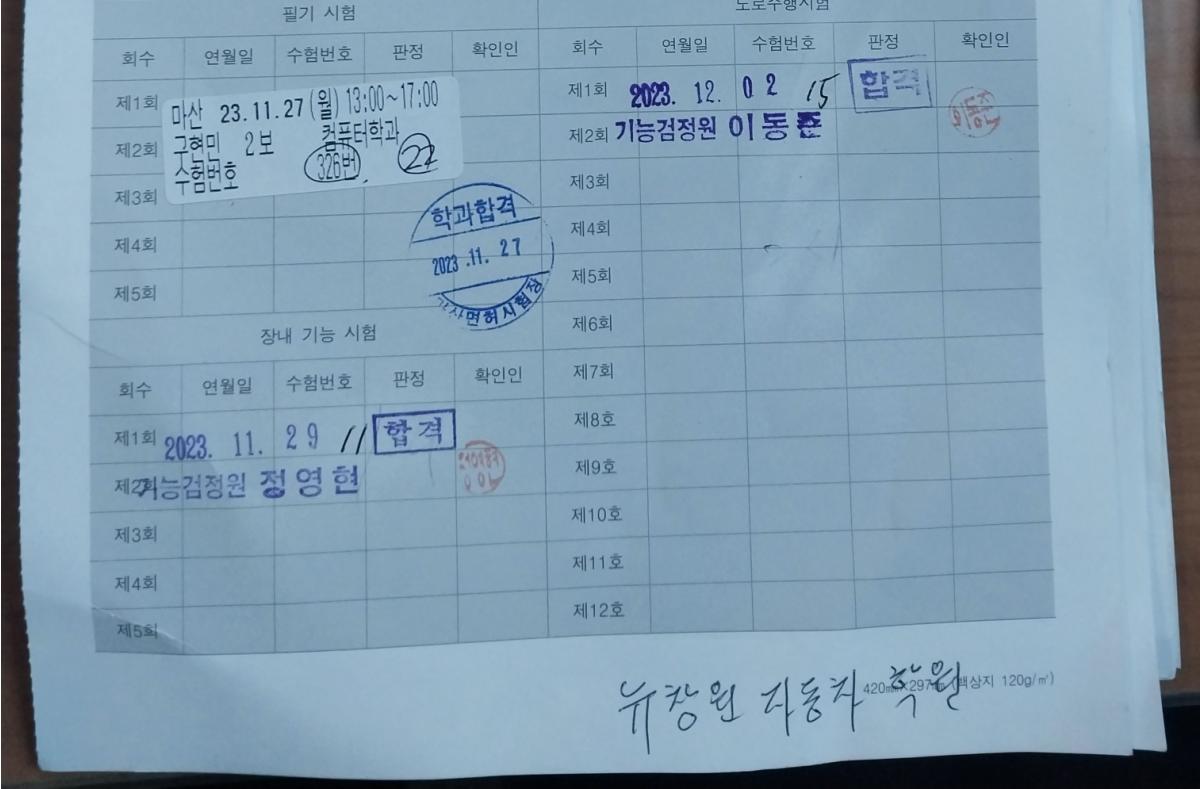 필기 시험
회수 연월일 수험번호 판정 확인인
제1회
마산 23.11.27 (월) 13:00~17:00
제2회
구현민 2보 컴퓨터학과
수험번호 326번 22
제3회
학과합격
제4회
2023 .11. 27
제5회
면허시험장
장내 기능 시험
회수 연월일 수험번호 판정 확인인
제1회 2023. 11. 29 11 합격
제2회 기능검정원 정영현
제3회
제4회
제5회
도로주행시험
회수 연월일 수험번호 판정 확인인
제1회 2023. 12. 02 15 합격
제2회 기능검정원 이동준
제3회
제4회
제5회
제6회
제7회
제8호
제9호
제10호
제11호
제12호
420㎜×297㎜ (백상지 120g/㎡)
뉴창원 자동차 학원